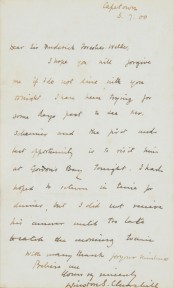 Capetown
My dear Sir Frederick
I hope you will forgive
me if I do not dine with you
tonight. I have been trying for
some days past to see
and the first and
last opportunity is to visit him
at Gordons Bay tonight. I had
hoped to return in time for
dinner, but I did not receive
his answer until too late
to catch the morning train
With many thanks
Believe me
Yours very sincerely
Winston S. Churchill